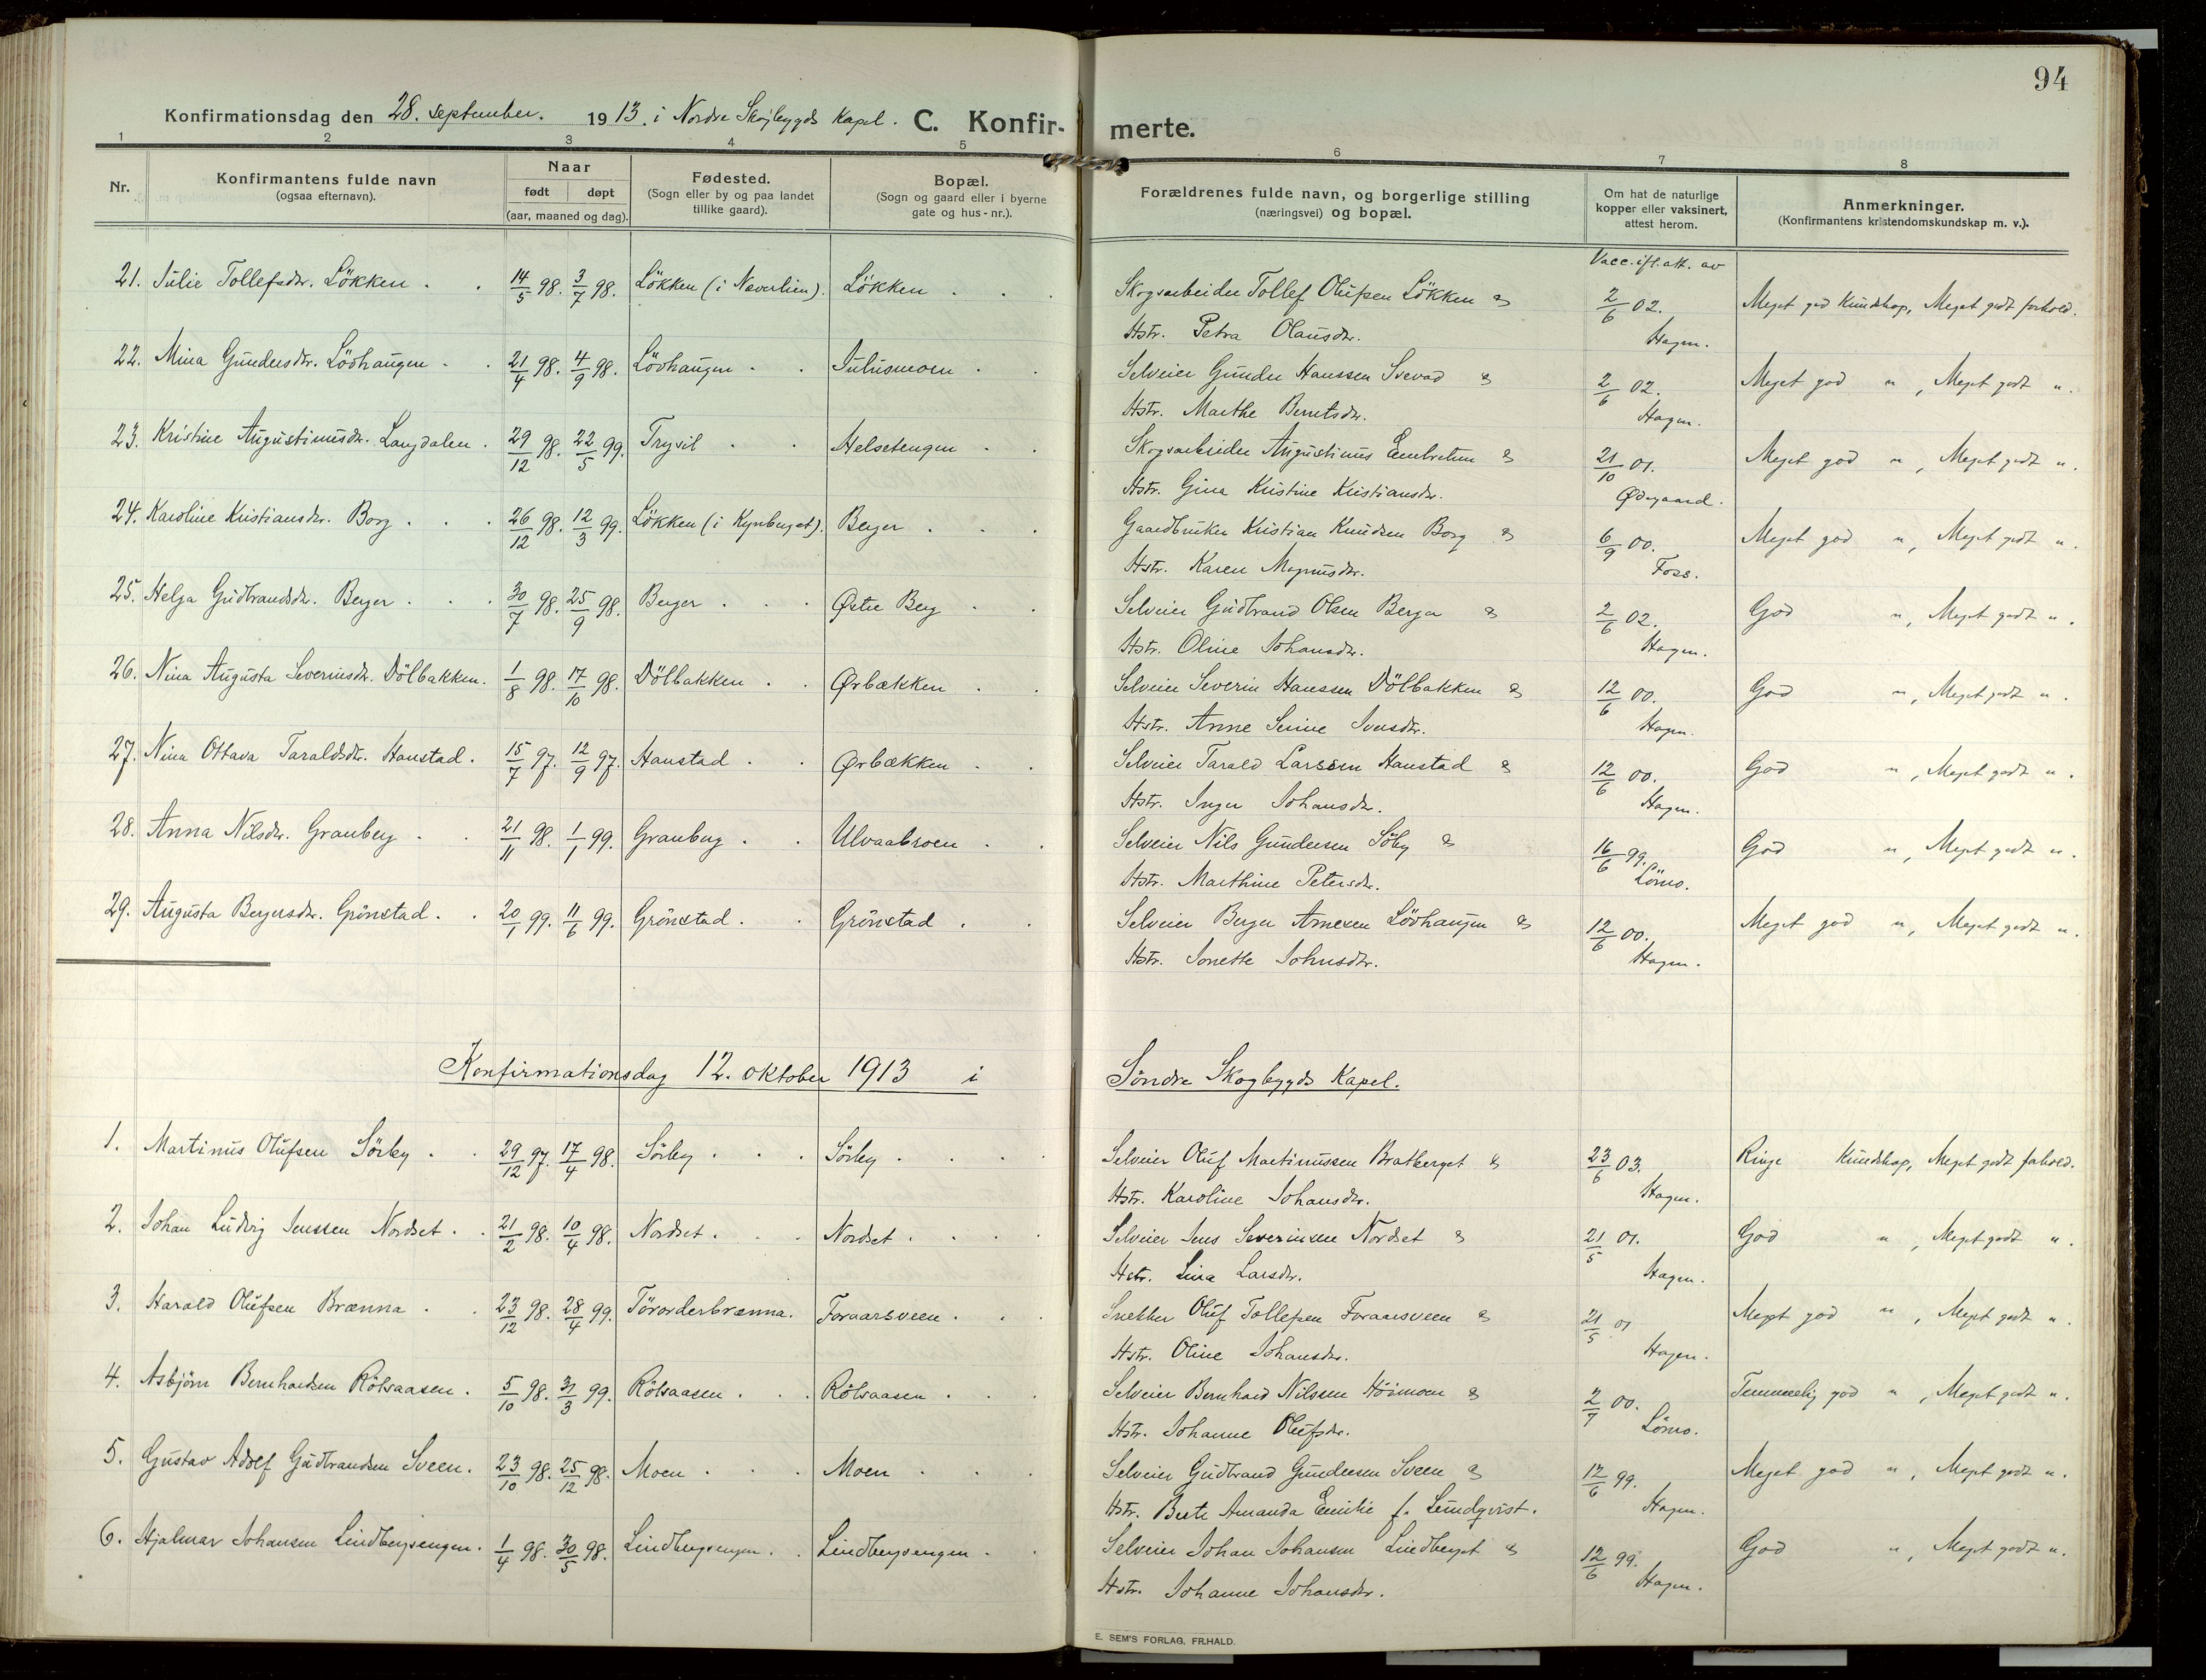 94
Konfirmationsdag den 28. september. 1913. i Nordre Skogbygds Kapel. C. Konfir-merte.
1 2 3 4 5 6 7 8
Nr.
Konfirmantens fulde navn
(ogsaa efternavn).
Naar
født døpt
(aar, maaned og dag).
Fødested.
(Sogn eller by og paa landet
tillike gaard).
Bopæl.
(Sogn og gaard eller i byerne
gate og hus-nr.).
Forældrenes fulde navn, og borgerlige stilling
(næringsvei) og bopæl.
Om hat de naturlige
kopper eller vaksinert,
attest herom.
Anmerkninger.
(Konfirmantens kristendomskundskap m. v.).
Vacc. ifl. att. av
21. Julie Tollefsdr. Løkken . . 14/5 98. 3/7 98. Løkken (i Næverlien). Løkken . . . Skogsarbeider Tollef Olufsen Løkken & 2/6 02. Meget god Kundskap, Meget godt forhold.
Hstr. Petra Olausdr. Hagen.
22. Mina Gundersdtr. Løvhaugen . . 21/4 98. 4/9 98. Løvhaugen . . Julusmoen . . Selveier Gunder Hanssen Svevad & 2/6 02. Meget god " , Meget godt " .
Hstr. Marthe Berntsdr. Hagen.
23. Kristine Augustinusdr. Langdalen . 29/12 98. 22/5 99. Trysil . . Helsetengen . . Skogsarbeider Augustinus Embretsen & 21/10 01. Meget god " , Meget godt " .
Hstr. Gina Kristine Kristiansdr. Ødegaard.
24. Karoline Kristiansdr. Borg . . . 26/12 98. 12/3 99. Løkken (i Kynberget). Berger . . . Gaardbruker Kristian Knudsen Borg & 6/9 00. Meget god " , Meget godt " .
Hstr. Karen Magnusdr. Foss.
25. Helga Gudbrandsdr. Berger . . . 30/7 98. 25/9 98. Berger . . . Østre Berg . . Selveier Gudbrand Olsen Berger & 2/6 02. God " , Meget godt " .
Hstr. Oline Johansdr. Hagen.
26. Nina Augusta Severinsdr. Dølbakken. 1/8 98. 17/10 98. Dølbakken . . Ørbækken . . Selveier Severin Hanssen Dølbakken & 12/6 00. God " , Meget godt " .
Hstr. Anne Serine Iversdtr. Hagen.
27. Nina Ottava Taraldsdr. Hanstad . 15/7 97. 12/9 97. Hanstad . . Ørbækken . . Selveier Tarald Larssen Hanstad & 12/6 00. God " , Meget godt " .
Hstr. Inger Johansdr. Hagen.
28. Anna Nilsdr. Granberg . . 21/11 98. 1/1 99. Granberg . . Ulvaabroen . . Selveier Nils Gundersen Söby & 16/6 99. God " , Meget godt " .
Hstr. Marthine Petersdr. Lömo.
29. Augusta Bergersdr. Grönstad . . 20/1 99. 11/6 99. Grönstad . . Grönstad . . Selveier Berger Arnesen Løvhaugen & 12/6 00. Meget god " , Meget godt " .
Hstr. Jonette Johnsdtr. Hagen.
Konfirmationsdag 12. oktober 1913 i Söndre Skogbygds Kapel.
1. Martinus Olufsen Sörby . . 29/12 97. 17/4 98. Sörby . . . Sörby . . . . Selveier Oluf Martinussen Bratberget & 23/6 03. Ringe Kundskap, Meget godt forhold.
Hstr. Karoline Johansdr. Hagen.
2. Johan Ludvig Jenssen Nordset . . 21/2 98. 10/4 98. Nordset . . . Nordset . . . . Selveier Jens Severinsen Nordset & 21/5 01. God " , Meget godt " .
Hstr. Lina Larsdr. Hagen.
3. Harald Olufsen Brænna . . 23/12 98. 28/4 99. Törorderbrænna. Foraarsveen . . . Snekker Oluf Tollefsen Foraarsveen & 21/5 01 Meget god " , Meget godt " .
Hstr. Oline Johansdr. Hagen.
4. Asbjörn Bernhardsen Rötsaasen . 5/10 98. 31/3 99. Rötsaasen . . . Rötsaasen . . . Selveier Bernhard Nilssen Höimoen & 2/7 00. Temmelig god " , Meget godt " .
Hstr. Johanne Olufsdr. Lömo.
5. Gustav Adolf Gudbrandsen Sveen . 23/10 98. 25/12 98. Moen . . . Moen . . . Selveier Gudbrand Gundersen Sveen & 12/6 99. Meget god " , Meget godt " .
Hstr. Berte Amanda Emilie f. Lundqvist. Hagen.
6. Hjalmar Johansen Lindbergsengen. 1/4 98. 30/5 98. Lindbergsengen . . Lindbergsengen . . Selveier Johan Johansen Lindberget & 12/6 99. God " , Meget godt " .
Hstr. Johanne Johansdtr. Hagen.
E. SEM'S FORLAG, FR.HALD.